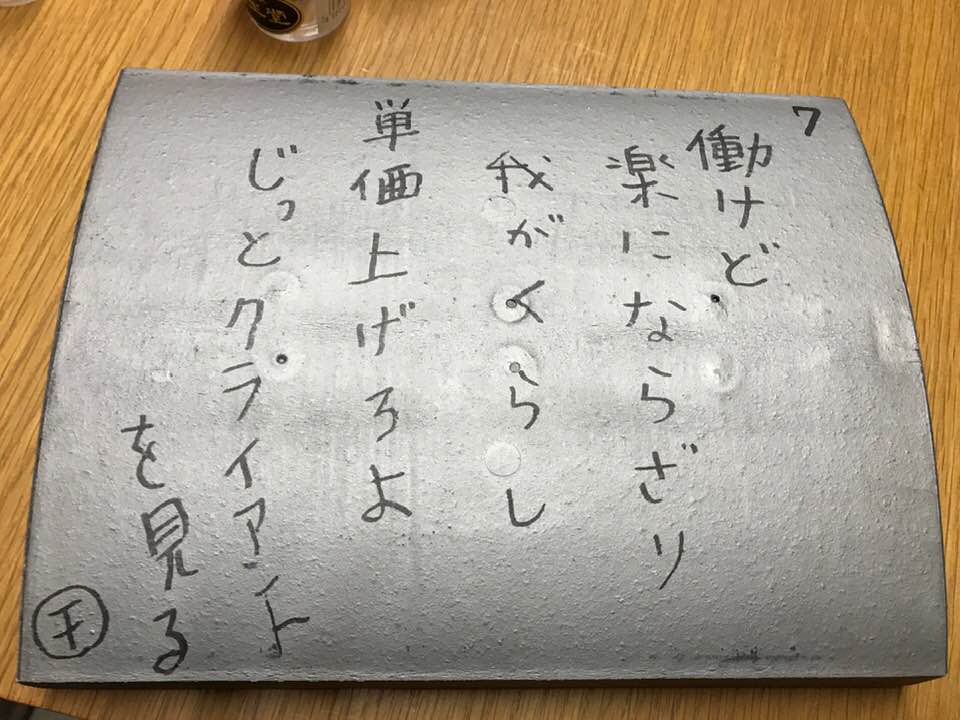 7
働けど
楽にならざり
我がくらし
単価上げろよ
じっとクライアント
を見る